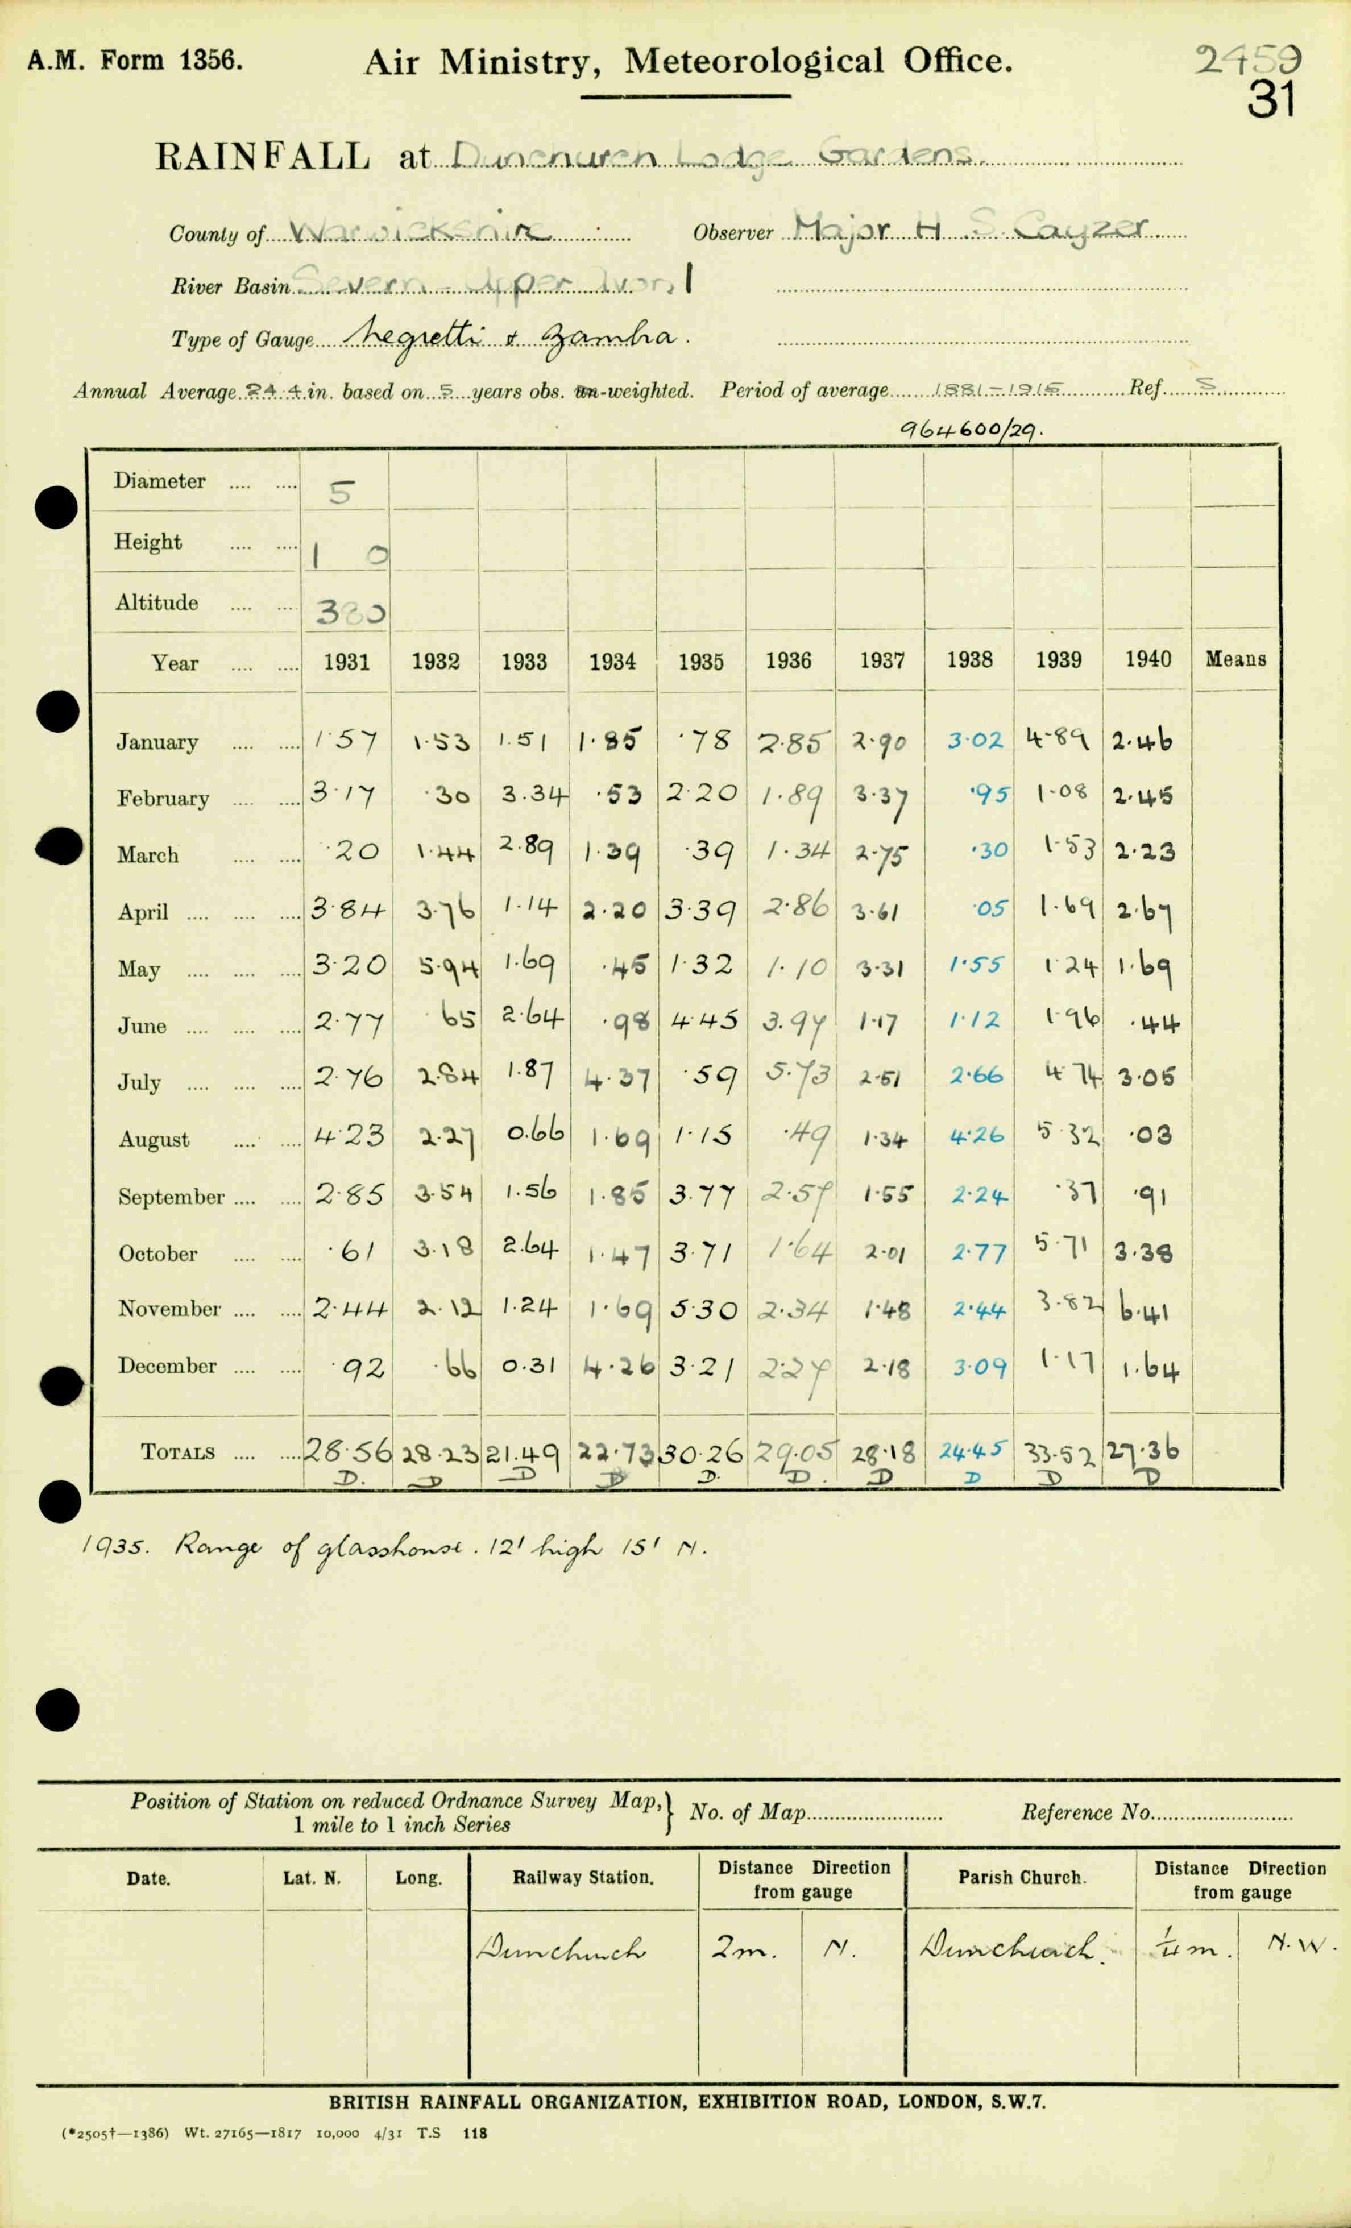 A.M. Form 1356.
Air Ministry, Meteorological Office.
2459
31
RAINFALL at Dunchurch Lodge Gardens.
County of Warwickshire Observer Major H. S. Cayzer
River Basin Severn - Upper Avon 1
Type of Gauge Negretti & Zambra.
Annual Average 24.4 in. based on 5 years obs. un-weighted. Period of average 1881-1915 Ref. S
964600/29.
Diameter 5
Height 1 0
Altitude 380
Year 1931 1932 1933 1934 1935 1936 1937 1938 1939 1940 Means
January 1.57 1.53 1.51 1.85 .78 2.85 2.90 3.02 4.89 2.46
February 3.17 .30 3.34 .53 2.20 1.89 3.37 .95 1.08 2.45
March .20 1.44 2.89 1.39 .39 1.34 2.75 .30 1.53 2.23
April 3.84 3.76 1.14 2.20 3.39 2.86 3.61 .05 1.69 2.67
May 3.20 5.94 1.69 .45 1.32 1.10 3.31 1.55 1.24 1.69
June 2.77 .65 2.64 .98 4.45 3.97 1.17 1.12 1.96 .44
July 2.76 2.84 1.87 4.37 .59 5.73 2.51 2.66 4.74 3.05
August 4.23 2.27 0.66 1.69 1.15 .49 1.34 4.26 5.32 .03
September 2.85 3.54 1.56 1.85 3.77 2.57 1.55 2.24 .37 .91
October .61 3.18 2.64 1.47 3.71 1.64 2.01 2.77 5.71 3.38
November 2.44 2.12 1.24 1.69 5.30 2.34 1.48 2.44 3.82 6.41
December .92 .66 0.31 4.26 3.21 2.27 2.18 3.09 1.17 1.64
TOTALS 28.56 28.23 21.49 22.73 30.26 29.05 28.18 24.45 33.52 27.36
D. D D D D. D. D D D D
1935. Range of glasshouse. 12' high 15' N.
Position of Station on reduced Ordnance Survey Map, 1 mile to 1 inch Series } No. of Map Reference No.
Date. Lat. N. Long. Railway Station. Distance Direction from gauge Parish Church. Distance Direction from gauge
Dunchurch 2m. N. Dunchurch. ¼ m. N.W.
BRITISH RAINFALL ORGANIZATION, EXHIBITION ROAD, LONDON, S.W.7.
(*2505†—1386) Wt. 27165—1817 10,000 4/31 T.S 118